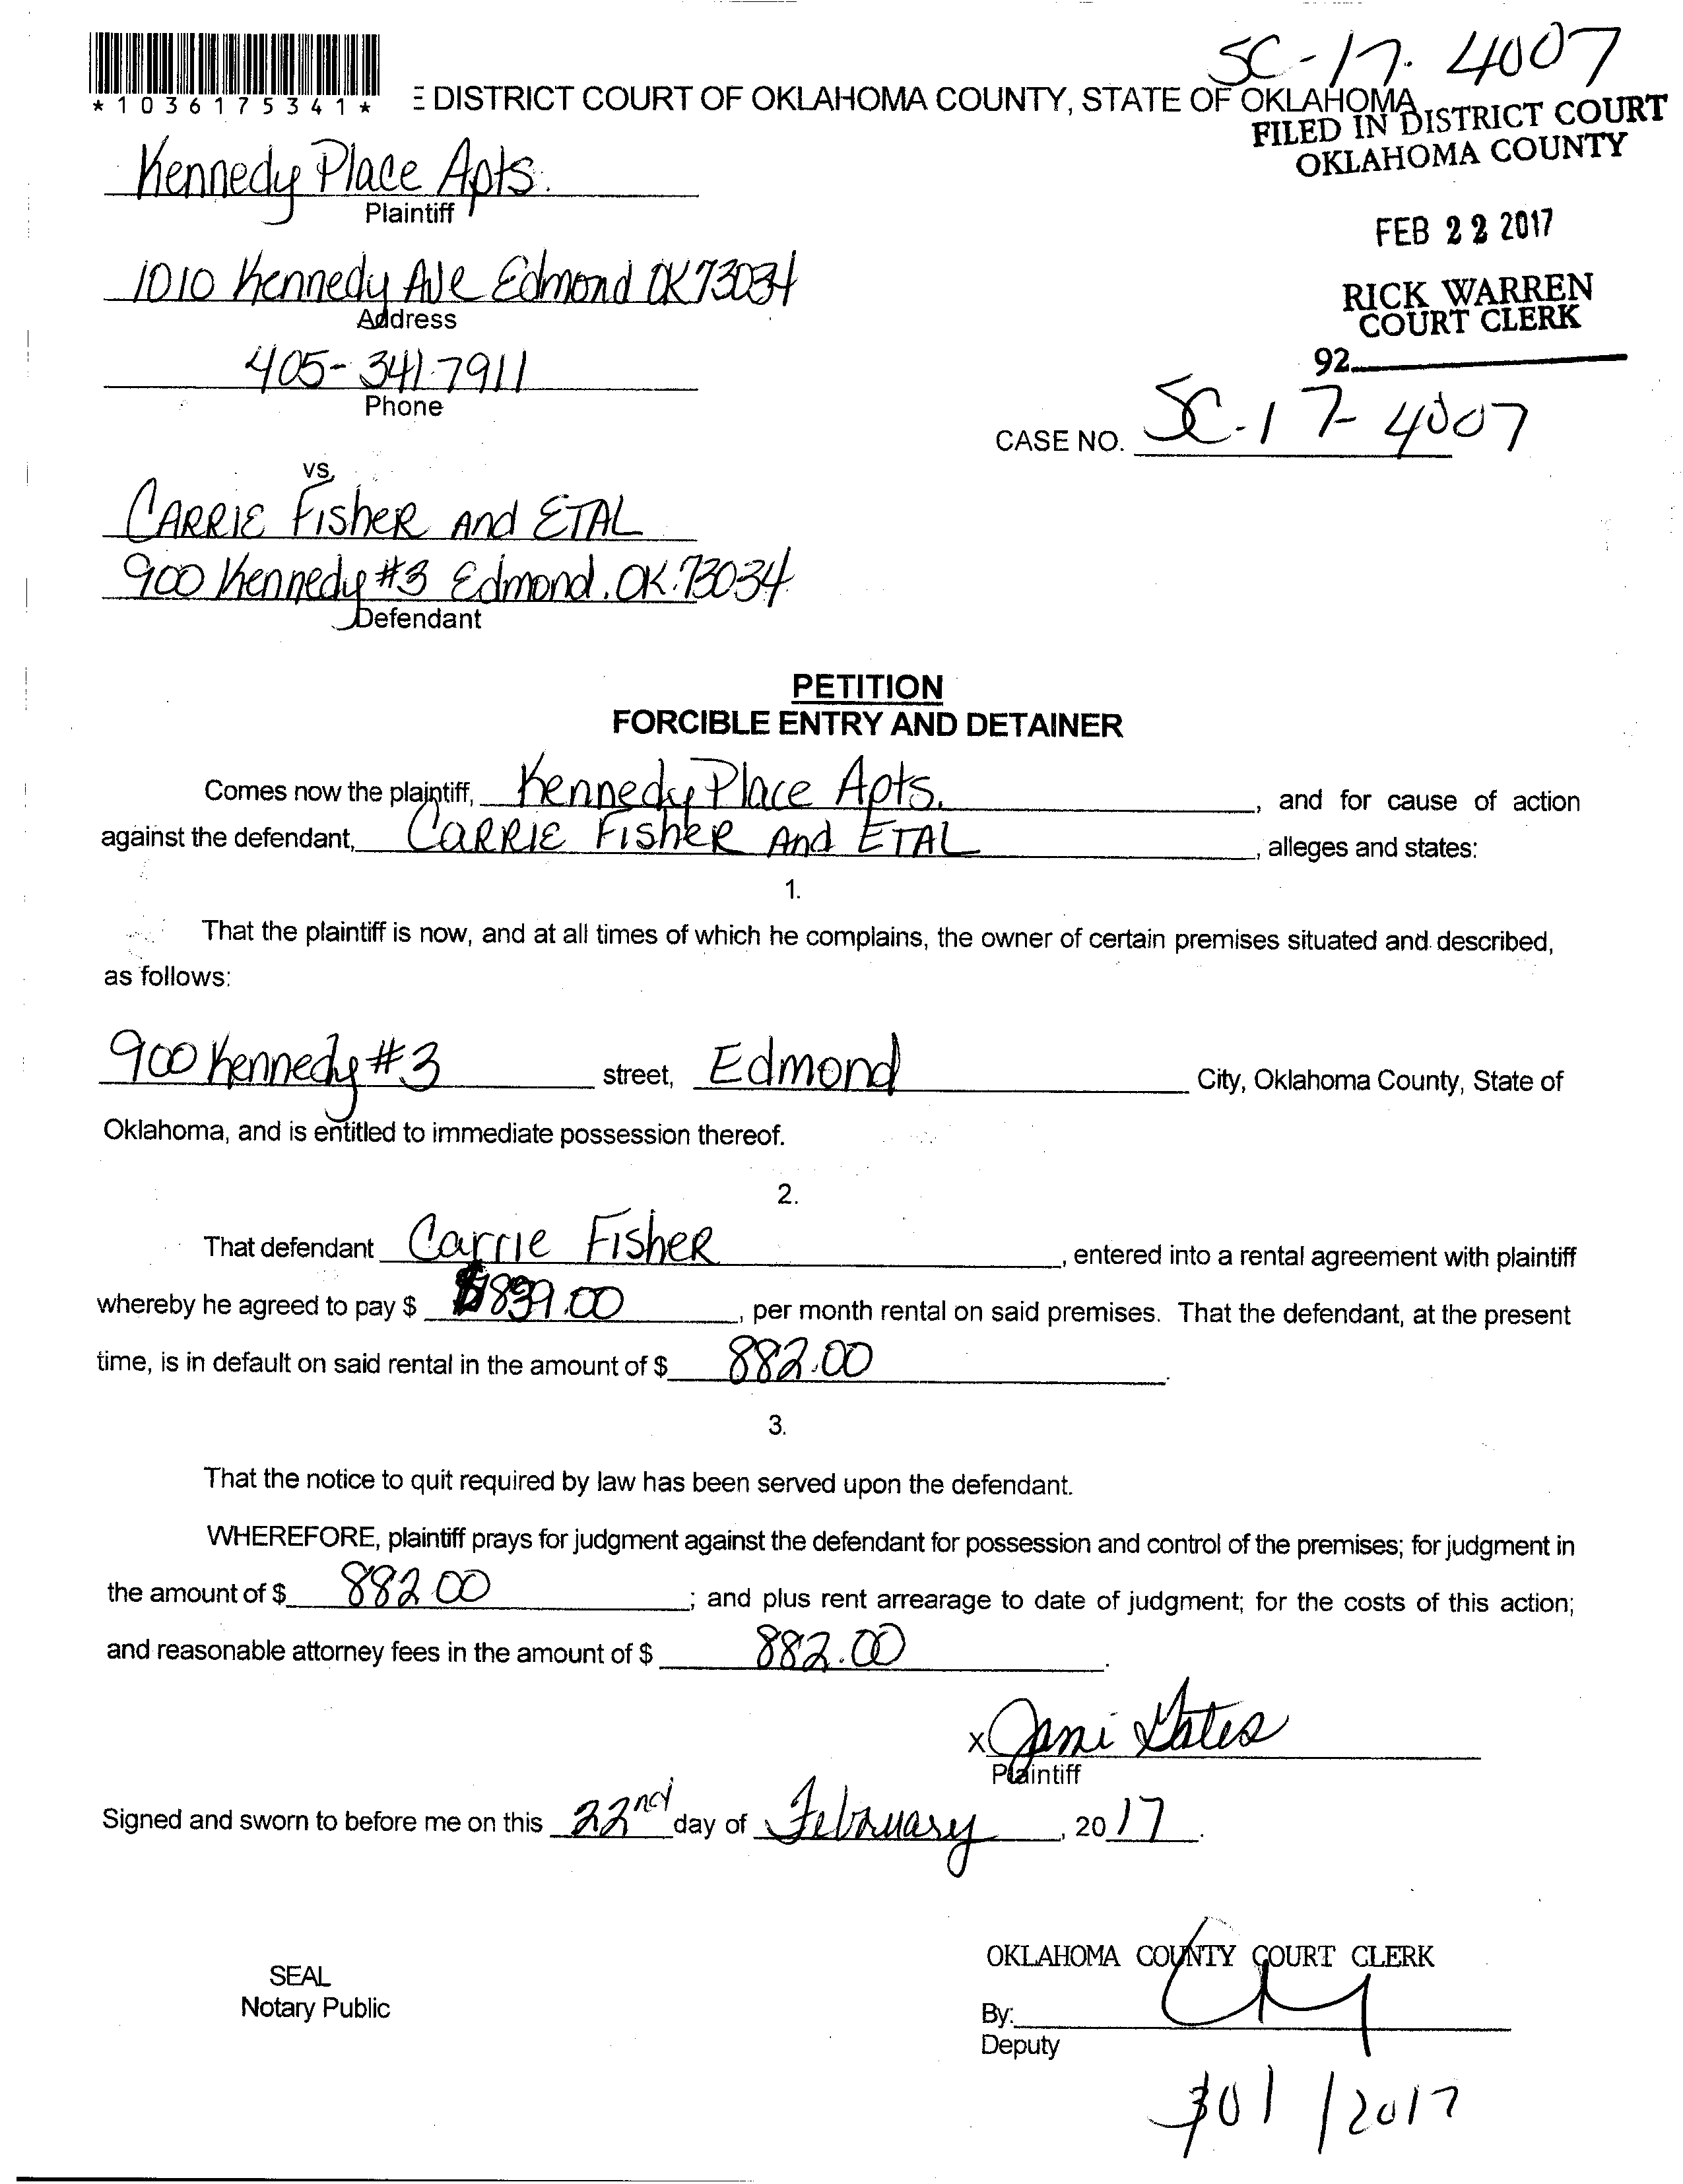 SC-17-4007
*1036175341*
E DISTRICT COURT OF OKLAHOMA COUNTY, STATE OF OKLAHOMA
FILED IN DISTRICT COURT
OKLAHOMA COUNTY
Kennedy Place Apts.
Plaintiff
FEB 22 2017
1010 Kennedy Ave Edmond OK 73034
Address
RICK WARREN
COURT CLERK
405-341-7911
Phone
92
CASE NO. SC-17-4007
vs.
CARRIE FISHER And ETAL
900 Kennedy #3 Edmond. OK. 73034
Defendant
PETITION
FORCIBLE ENTRY AND DETAINER
Comes now the plaintiff, Kennedy Place Apts., and for cause of action
against the defendant, CARRIE FISHER And ETAL, alleges and states:
1.
That the plaintiff is now, and at all times of which he complains, the owner of certain premises situated and described,
as follows:
900 Kennedy #3 street, Edmond City, Oklahoma County, State of
Oklahoma, and is entitled to immediate possession thereof.
2.
That defendant Carrie Fisher, entered into a rental agreement with plaintiff
whereby he agreed to pay $ $839.00, per month rental on said premises. That the defendant, at the present
time, is in default on said rental in the amount of $ 882.00.
3.
That the notice to quit required by law has been served upon the defendant.
WHEREFORE, plaintiff prays for judgment against the defendant for possession and control of the premises; for judgment in
the amount of $ 882.00; and plus rent arrearage to date of judgment; for the costs of this action;
and reasonable attorney fees in the amount of $ 882.00.
x Jani Gates
Plaintiff
Signed and sworn to before me on this 22nd day of February, 2017.
OKLAHOMA COUNTY COURT CLERK
SEAL
Notary Public
By:
Deputy
301/2017